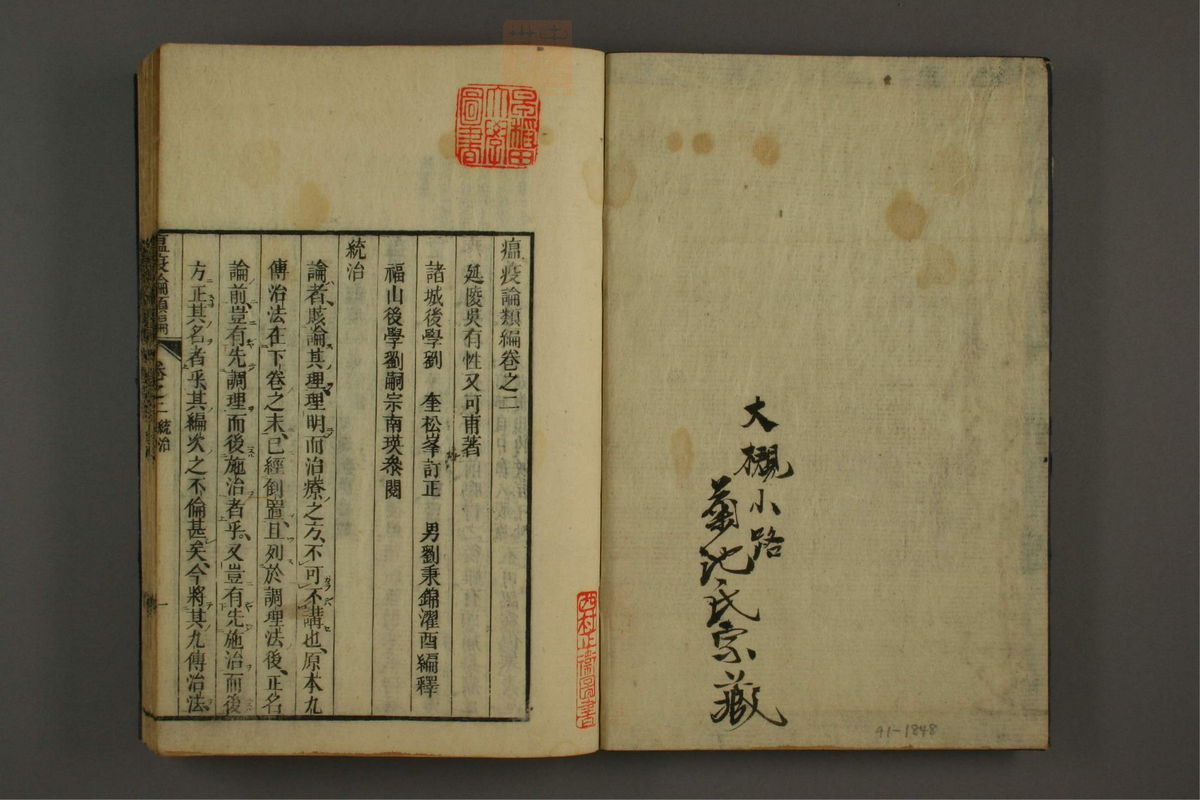 大概小路
菊池氏宗蔵
91-1848
早稲田
大學
圖書
瘟疫論類編卷之二
延陵吳有性又可甫著
諸城後學劉 奎松峯訂正 男劉秉錦濯西編釋
福山後學劉嗣宗南瑛叅閱
統治
論者賅論其理理明而治療之方、不可不講也、原本九
傳治法在下卷之末、已經倒置、且列於調理法後、正名
論前、豈有先調理而後施治者乎。又豈有先施治而後
方正其名者乎、其編次之不倫甚矣、今將其九傳治法、
瘟疫論類編 卷之二 統治 一